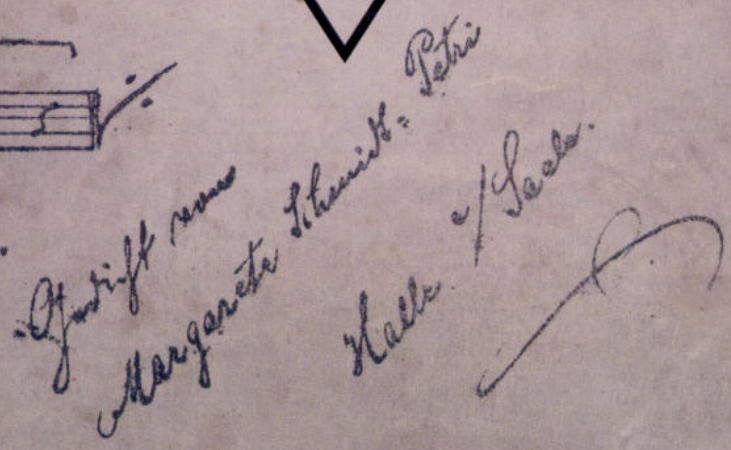 Gedicht von
Margarete Schmidt=Petri
Halle a/Saale.